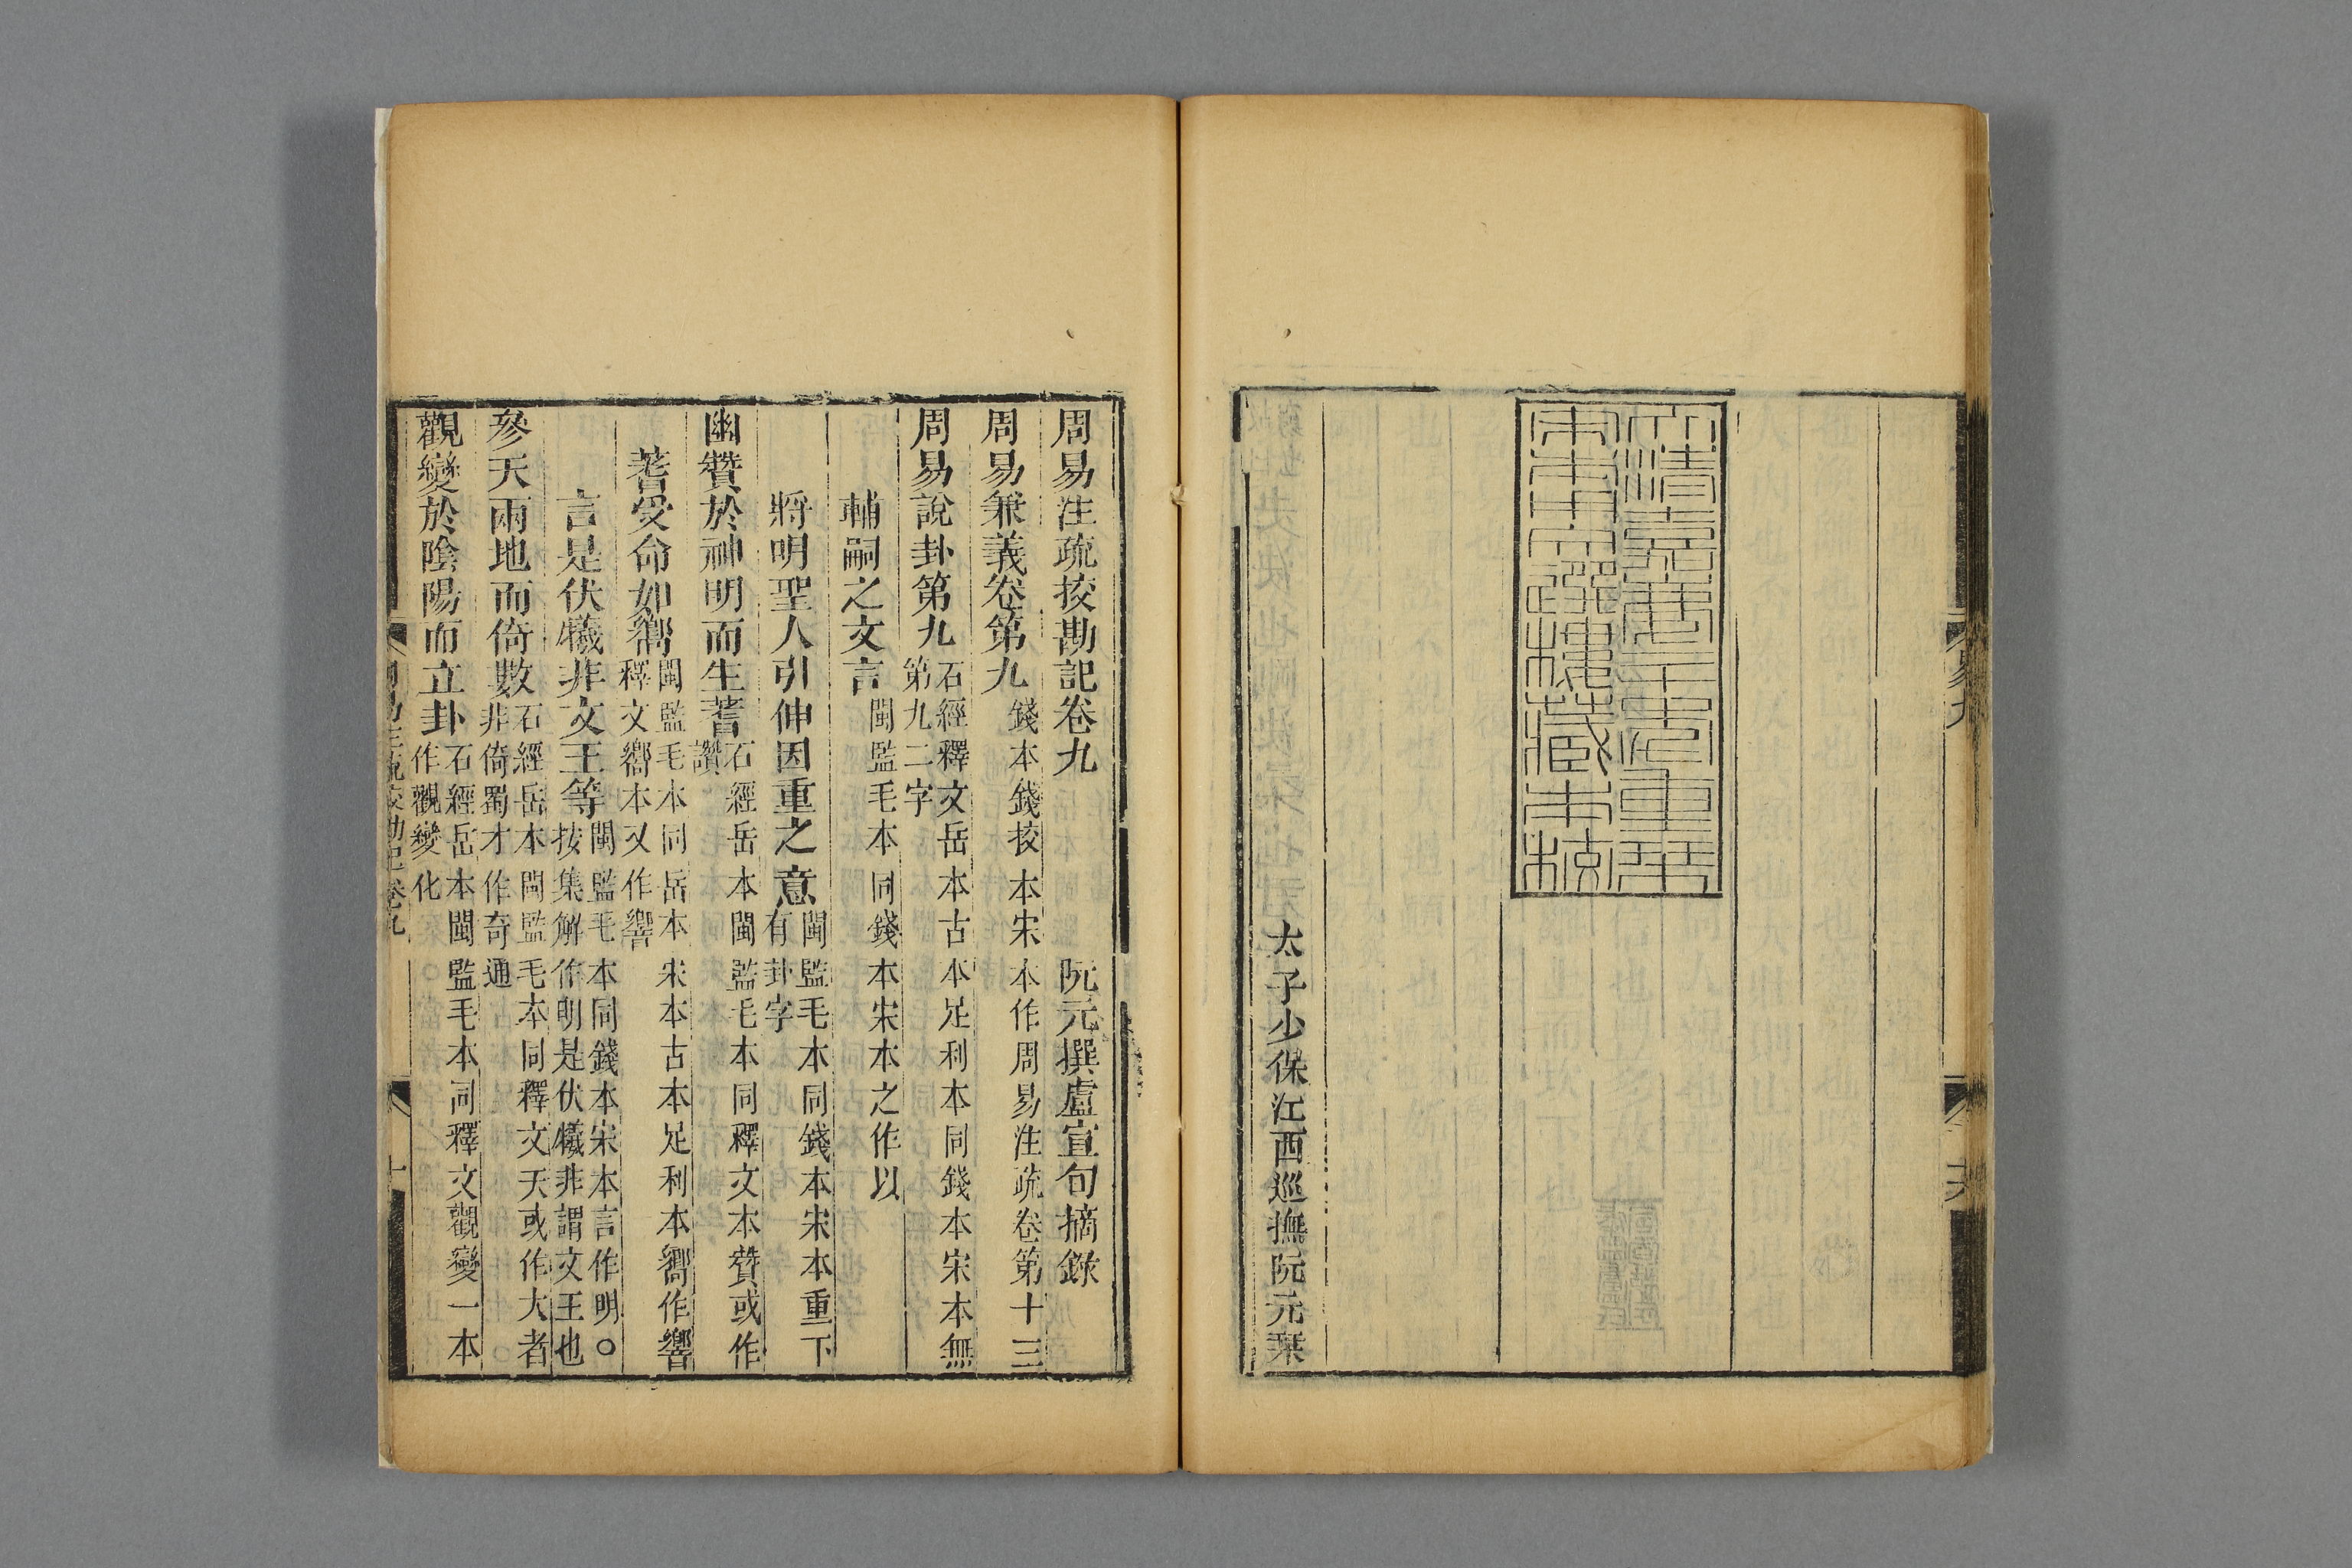 大清嘉慶二十年重栞
宋本用文選樓藏本校
太子少保江西巡撫阮元栞
易九
周易注疏挍勘記卷九 阮元撰盧宣旬摘錄
周易兼義卷第九 錢本錢挍本宋本作周易注疏卷第十三
周易說卦第九 石經釋文岳本古本足利本同錢本宋本無第九二字
輔嗣之文言 閩監毛本同錢本宋本之作以
將明聖人引伸因重之意 閩監毛本同錢本宋本重下有卦字
幽贊於神明而生蓍 石經岳本閩監毛本同釋文本贊或作讚
蓍受命如嚮 閩監毛本同岳本宋本古本足利本嚮作響釋文嚮本又作響
言是伏犧非文王等 閩監毛本同錢本宋本言作明○按集解作明是伏犧非謂文王也
參天兩地而倚數 石經岳本閩監毛本同釋文天或作大者非倚蜀才作奇通
觀變於陰陽而立卦 石經岳本閩監毛本同釋文觀變一本作觀變化